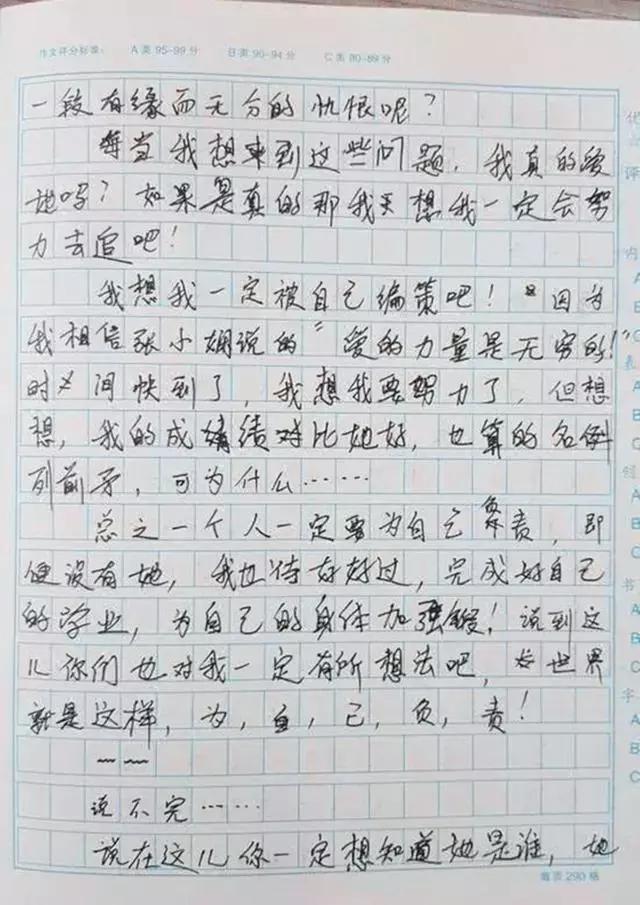 作文评分标准： A类 95-99分 B类 90-94分 C类 80-89分
一段有缘而无分的仇恨呢？
每当我想来到这些问题，我真的爱
她吗？如果是真的那我天想我一定会努
力去追吧！
我想我一定被自己编策吧！因为
我相信张小娴说的“爱的力量是无穷的！”
时间快到了，我想我要努力了，但想
想，我的成绩对比她好，也算的名例
列前矛，可为什么……
总之一个人一定要为自己负责，即
便没有她，我也待好好过，完成好自己
的学业，为自己的身体加强锻！说到这
儿你们也对我一定有所想法吧，世界
就是这样，为，自，己，负，责！
~~
说不完……
说在这儿你一定想知道她是谁，她
每页290格
评
内
A
B
C
表
A
B
C
创
A
B
C
书
A
B
C
字
A
B
C